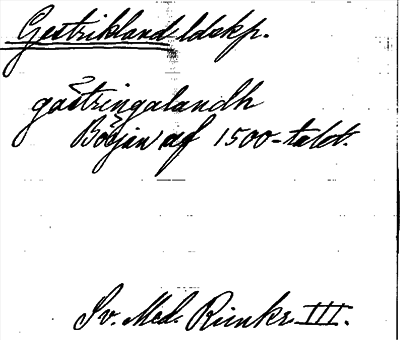 Gestrikland ldskp.
gästringalandh
Början af 1500-talet.
Sv. Med. Rimkr. III.